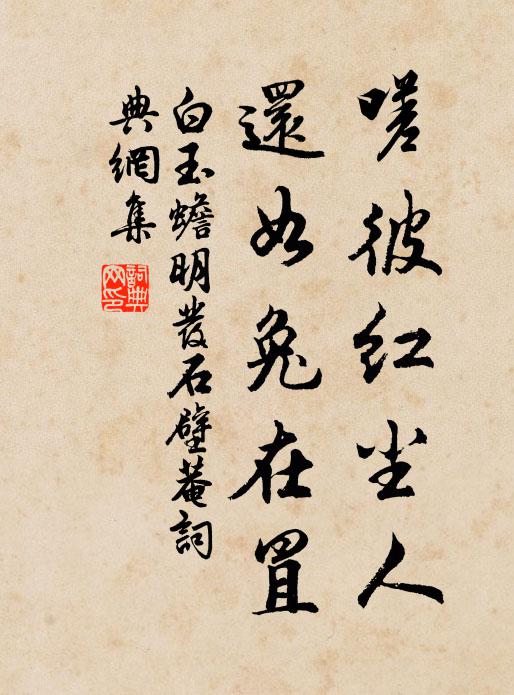 嗟彼红尘人
還如兔在罝
白玉蟾明发石壁菴詞
典網集
詞典网印